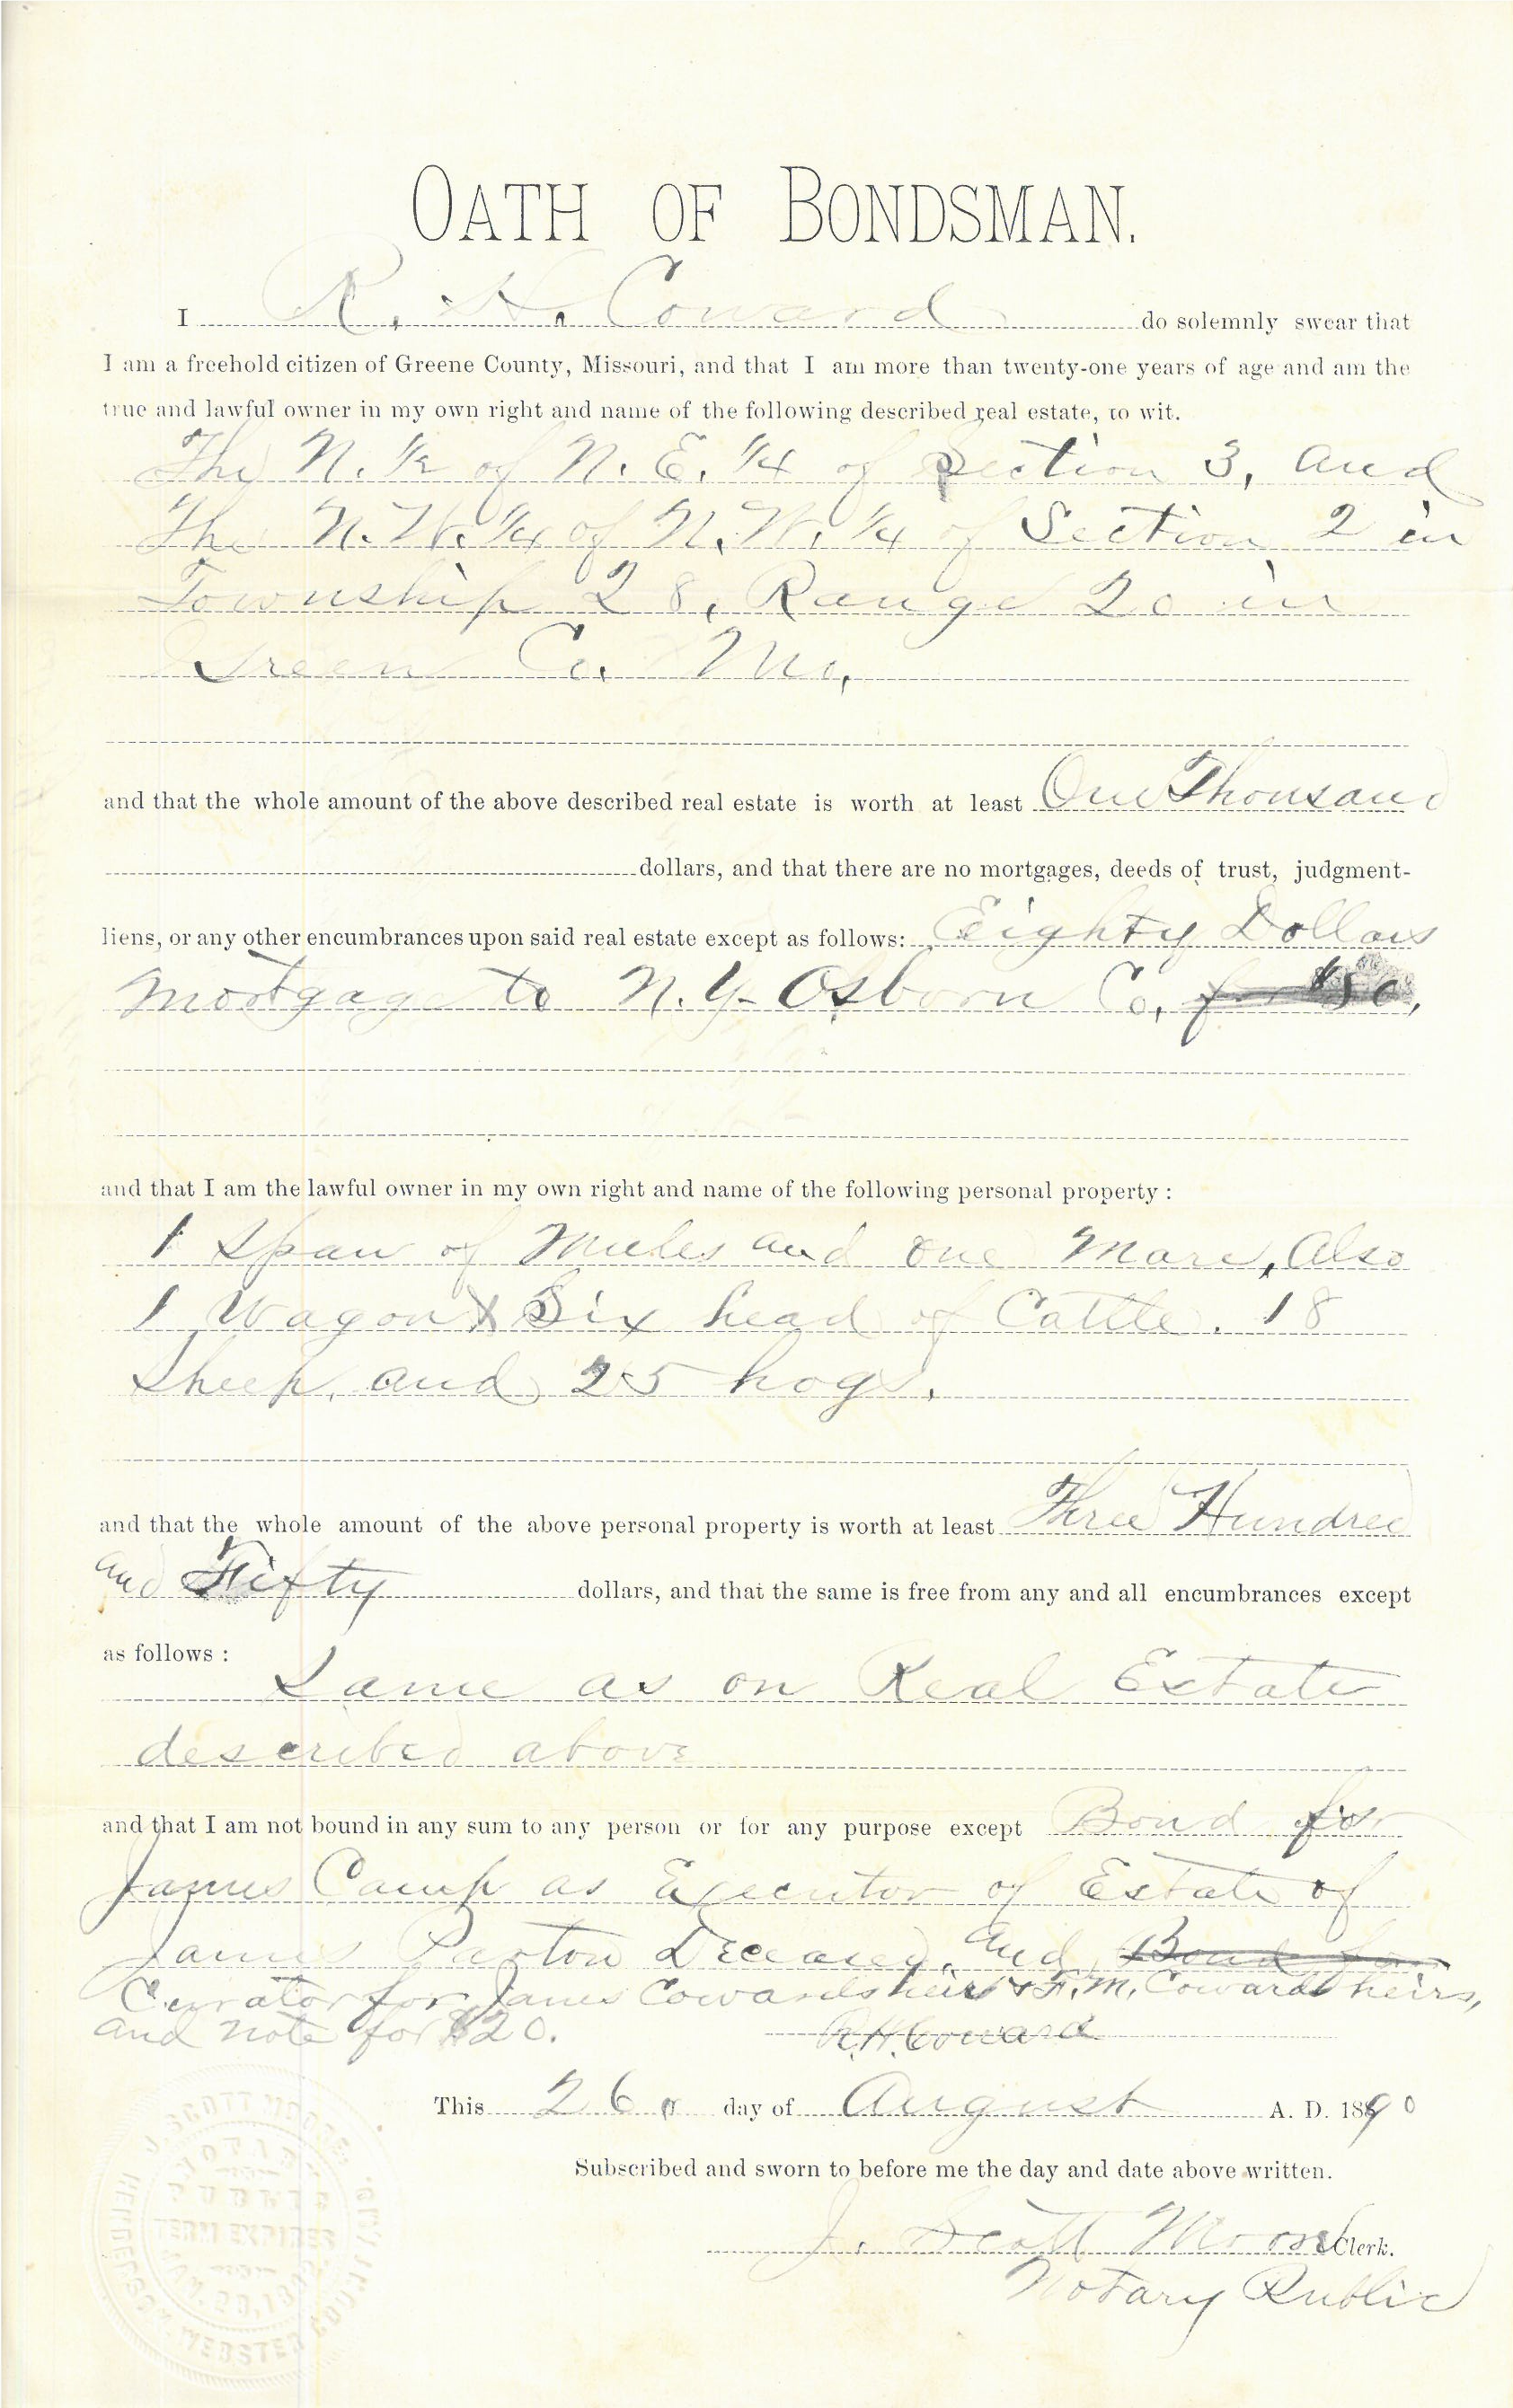 OATH OF BONDSMAN.
I R. H. Coward do solemnly swear that
I am a freehold citizen of Greene County, Missouri, and that I am more than twenty-one years of age and am the
true and lawful owner in my own right and name of the following described real estate, to wit.
The N. 1/2 of N. E. 1/4 of Section 3, and
The N. W. 1/4 of N. W. 1/4 of Section 2 in
Township 28, Range 20 in
Green Co. Mo,
and that the whole amount of the above described real estate is worth at least One Thousand
dollars, and that there are no mortgages, deeds of trust, judgment-
liens, or any other encumbrances upon said real estate except as follows: Eighty Dollars
mortgage to N. Y. Osborn Co, for $80,
and that I am the lawful owner in my own right and name of the following personal property :
1 Span of Mules and one Mare, Also
1 Wagon & Six head of Cattle. 18
Sheep, and 25 hogs.
and that the whole amount of the above personal property is worth at least Three Hundred
and Fifty dollars, and that the same is free from any and all encumbrances except
as follows :
Same as on Real Estate
described above
and that I am not bound in any sum to any person or for any purpose except Bond for
James Camp as Executor of Estate of
James Paxton Deceased, and Bond for
Currator for James Cowards heirs & F. M. Cowards heirs,
and note for $20. R. H. Coward
This 26 day of August A. D. 1890
Subscribed and sworn to before me the day and date above written.
J. Scott Moore Clerk.
Notary Public
J. SCOTT MOORE
NOTARY
PUBLIC
TERM EXPIRES
WEBSTER COUNTY